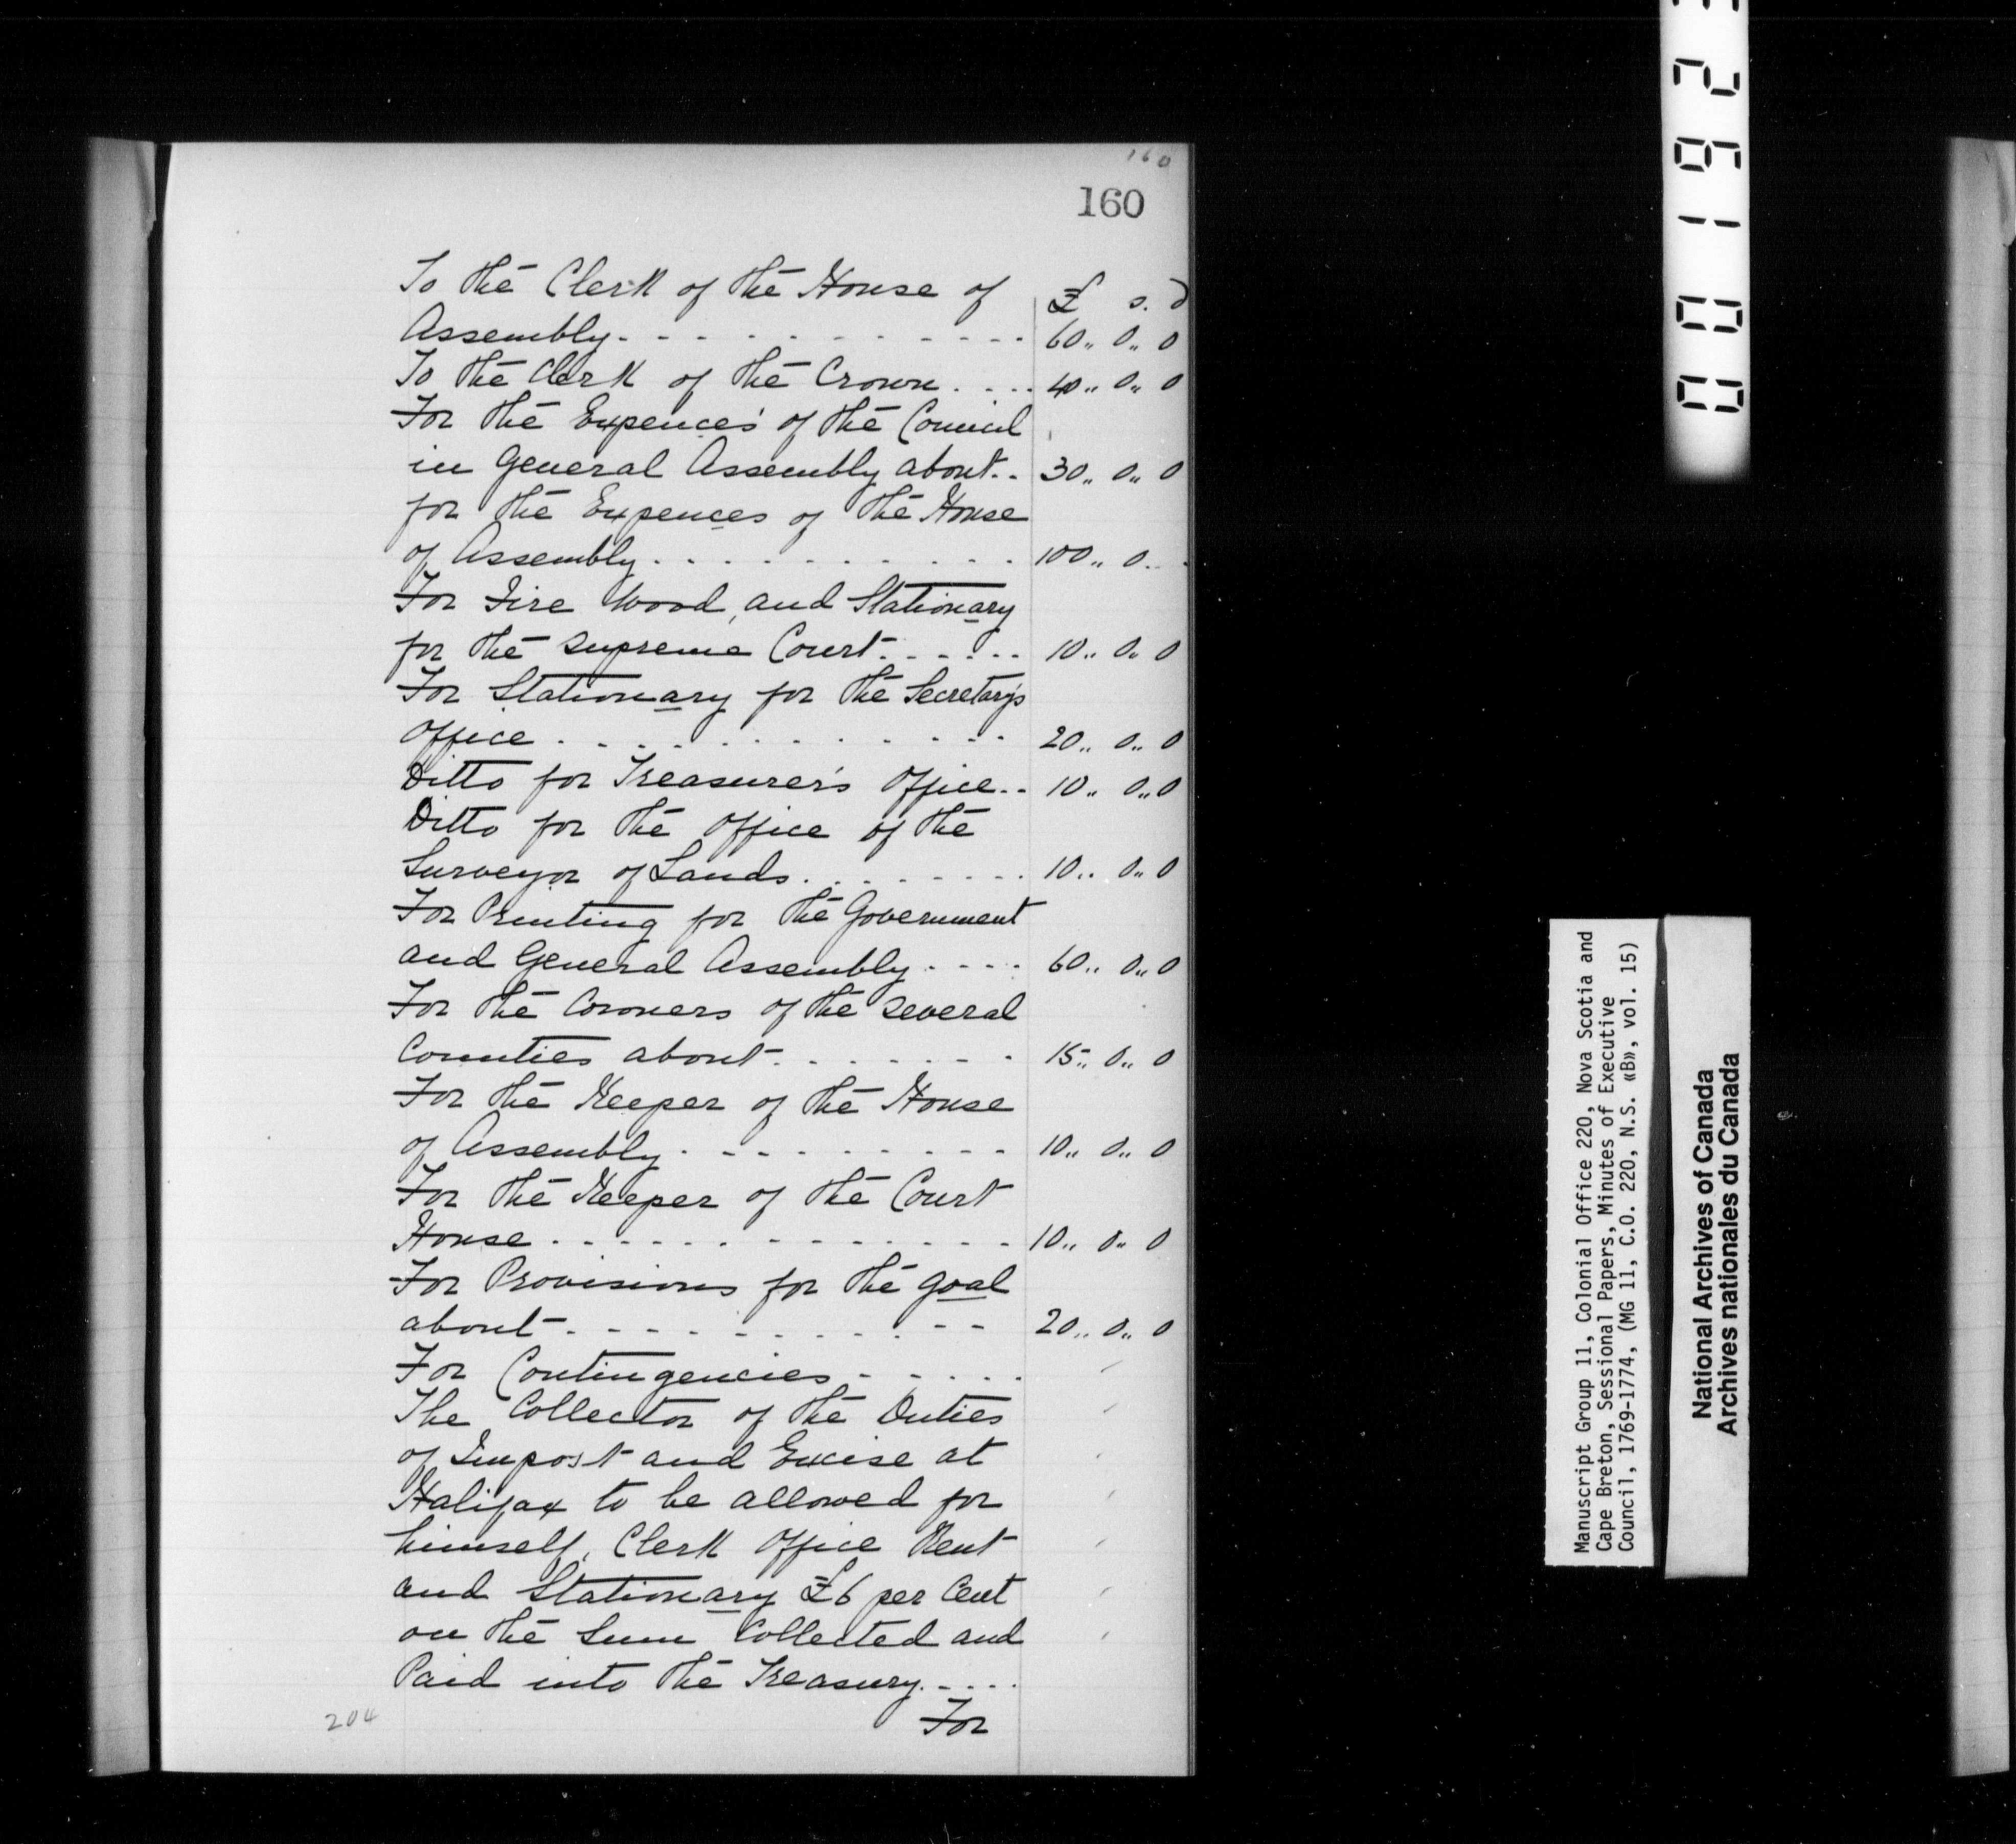 160
160
To the Clerk of the House of £ s. d
Assembly. - - - - - - - - - - - 60.. 0.. 0
To the Clerk of the Crown. . . . 40.. 0.. 0
For the Expences of the Council
in General Assembly about. . 30.. 0.. 0
for the Expences of the House
of Assembly. . . . . . . . . . . . 100.. 0. .
For Fire Wood, and Stationary
for the Supreme Court. . . . . . 10.. 0.. 0
For Stationary for the Secretary's
Office . . . . . . . . . . . . . . 20.. 0.. 0
Ditto for Treasurer's Office. . 10.. 0.. 0
Ditto for the Office of the
Surveyor of Lands. . . . . . . . 10.. 0.. 0
For Printing for the Government
and General Assembly . . . . 60.. 0.. 0
For the Coroners of the several
Counties about . . . . . . . 15.. 0.. 0
For the Keeper of the House
of Assembly . . . . . . . . . . 10.. 0.. 0
For the Keeper of the Court
House . . . . . . . . . . . . . . 10.. 0.. 0
For Provisions for the Goal
about . . . . . . . . . . . . 20.. 0.. 0
For Contingencies . . . . .
The Collector of the Duties
of Impost and Excise at
Halifax to be allowed for
himself, Clerk Office Rent
and Stationary £6 per Cent
on the Sum Collected and
Paid into the Treasury. . . .
For
204
Manuscript Group 11, Colonial Office 220, Nova Scotia and
Cape Breton, Sessional Papers, Minutes of Executive
Council, 1769-1774, (MG 11, C.O. 220, N.S. «B», vol. 15)
National Archives of Canada
Archives nationales du Canada
001923